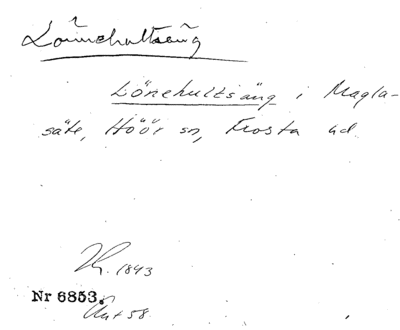 Lönnehultsäng
Lönehultsäng i Magla-
säte, Höör sn, Frosta hd
1843
Nr 6853.
58